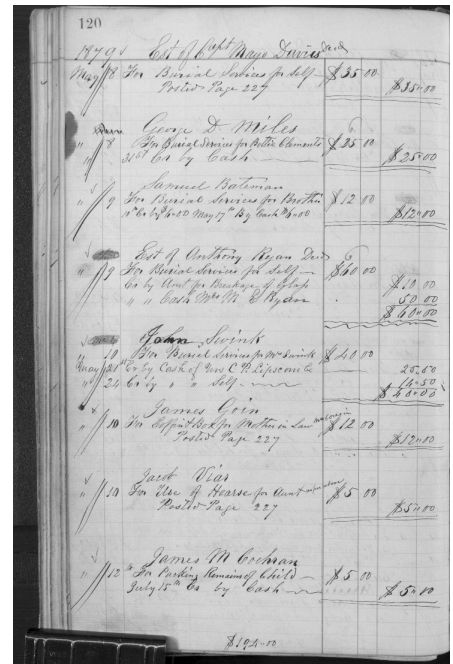 120
1879 Est of Capt Mayo Davies Decd
May 8 For Burial Services for Self $35 00
Posted Page 227 $35.00
George D Miles
" 8 For Burial Services for Bettie Clements $25 00
31st Cr by Cash $25.00
Samuel Bateman
" 9 For Burial Services for Brother $12 00
Cr by 6.00 May 17th By Cash $6.00 $12.00
Est of Anthony Ryan Decd
" 9 For Burial Services for Self $60 00
Cr by Amt for Breakage of Glass $10 00
" " Cash Mrs M E Ryan 50 00
$60.00
John Swink
" 10 For Burial Services for Mrs Swink $40 00
May 20 Cr by Cash of C P Lipscomb 25.50
" 24 Cr by " " Self 14.50
$40.00
James Goin
" 10 For Coffin & Box for Mother in Law $12 00
Posted Page 227 $12.00
Jacob Vias
" 10 For Use of Hearse for Aunt $5 00
Posted Page 227 $5.00
James M Cochran
" 12th For Packing Remains of Child $5 00
July 15th Cr by Cash $5.00
$194.00